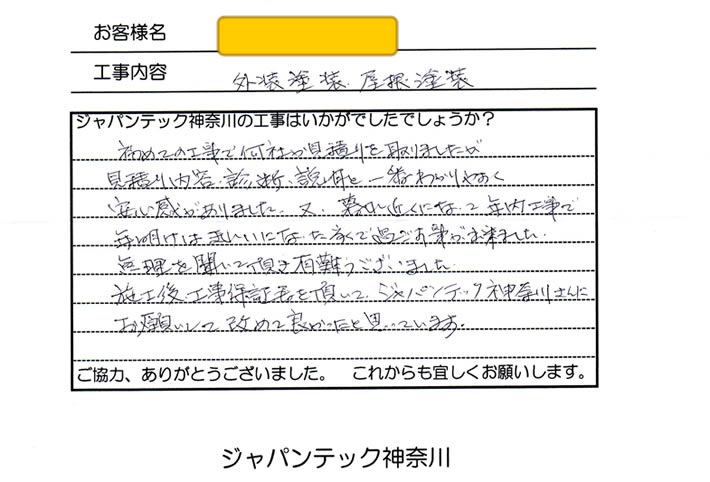 お客様名
工事内容 外装塗装、屋根塗装
ジャパンテック神奈川の工事はいかがでしたでしょうか？
初めての工事で何社か見積りを取りましたが
見積り内容、診断、説明と一番わかりやすく
安心感がありました。又、暮れ近くになって年内工事で
年明けはきれいになった家で過ごす事が出来ました。
無理を聞いて頂き有難うございました。
施工後工事保証書を頂いて、ジャパンテック神奈川さんに
お願いして改めて良かったと思っています。
ご協力、ありがとうございました。 これからも宜しくお願いします。
ジャパンテック神奈川